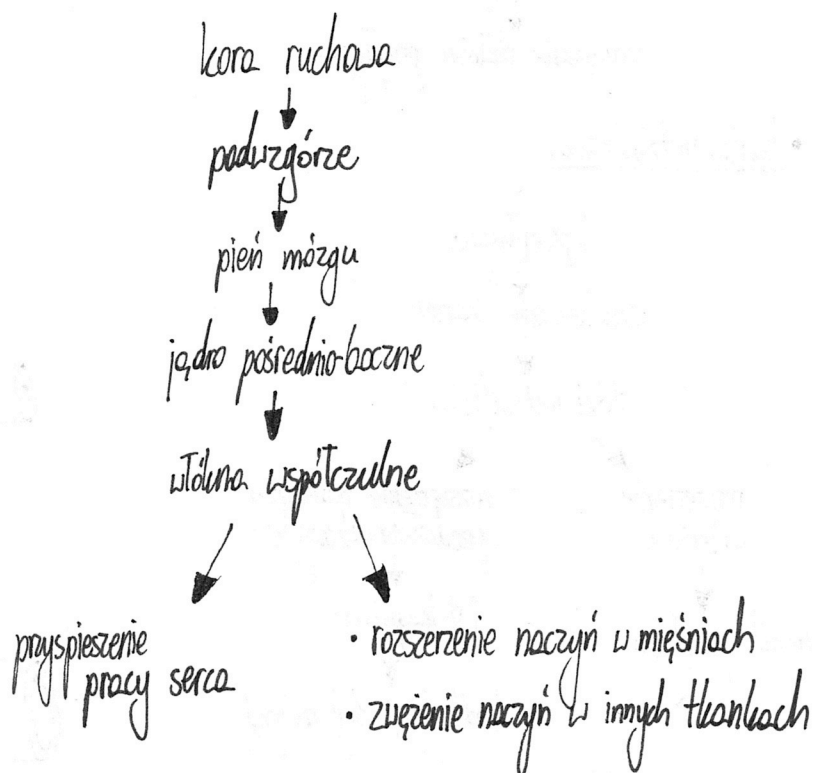 kora ruchowa
podwzgórze
pień mózgu
jądro pośrednio-boczne
włókna współczulne
przyspieszenie
pracy serca
· rozszerzenie naczyń w mięśniach
· zwężenie naczyń w innych tkankach